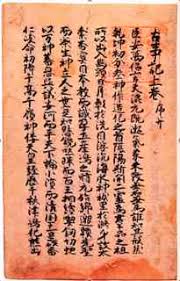 古事記上巻 序并
臣安万侶言夫混元既凝氣象未效無名無為誰知其形然
乾坤初分參神作造化之首陰陽斯開二靈為群品之祖
所以出入幽顯日月彰於洗目浮沈海水神祇呈於滌身故太
素杳冥因本教而識孕土產嶋之時元始綿邈賴先聖
而察生神立人之世寔知懸鏡吐珠而百王相續喫釼切蛇
以万神蕃息與議安河而平天下論小濱而清國土是以番
仁岐命初降于高千嶺神倭天皇經歷于秋津嶋化熊出